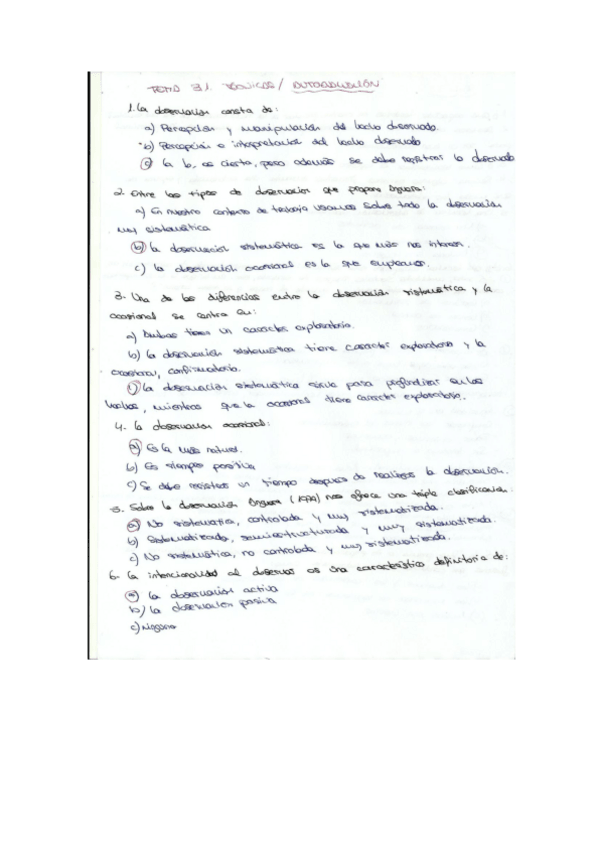 TEMA 3.1. TÉCNICAS / AUTOEVALUACIÓN
1. La observación consta de:
a) Percepción y manipulación del hecho observado.
b) Percepción e interpretación del hecho observado
c) la b, es cierta, pero además se debe registrar lo observado
2. Entre los tipos de observación que propone Anguera:
a) En nuestro contexto de trabajo usamos sobre todo la observación
muy sistemática
b) la observación sistemática es la que más nos interesa.
c) la observación ocasional es la que empleamos.
3. Una de las diferencias entre la observación sistemática y la
ocasional se centra en:
a) Ambas tienen un carácter exploratorio.
b) la observación sistemática tiene carácter exploratorio y la
ocasional, confirmatorio.
c) la observación sistemática sirve para profundizar en los
hechos, mientras que la ocasional tiene carácter exploratorio.
4. La observación ocasional:
a) Es la más natural.
b) Es siempre pasiva
c) Se debe registrar un tiempo después de realizar la observación.
5. Sobre la observación Anguera nos ofrece una triple clasificación.
a) No sistemática, controlada y muy sistematizada.
b) Sistematizada, semiestructurada y muy sistematizada.
c) No sistemática, no controlada y muy sistematizada.
6. La intencionalidad al observar es una característica definitoria de:
a) la observación activa
b) la observación pasiva
c) ninguna